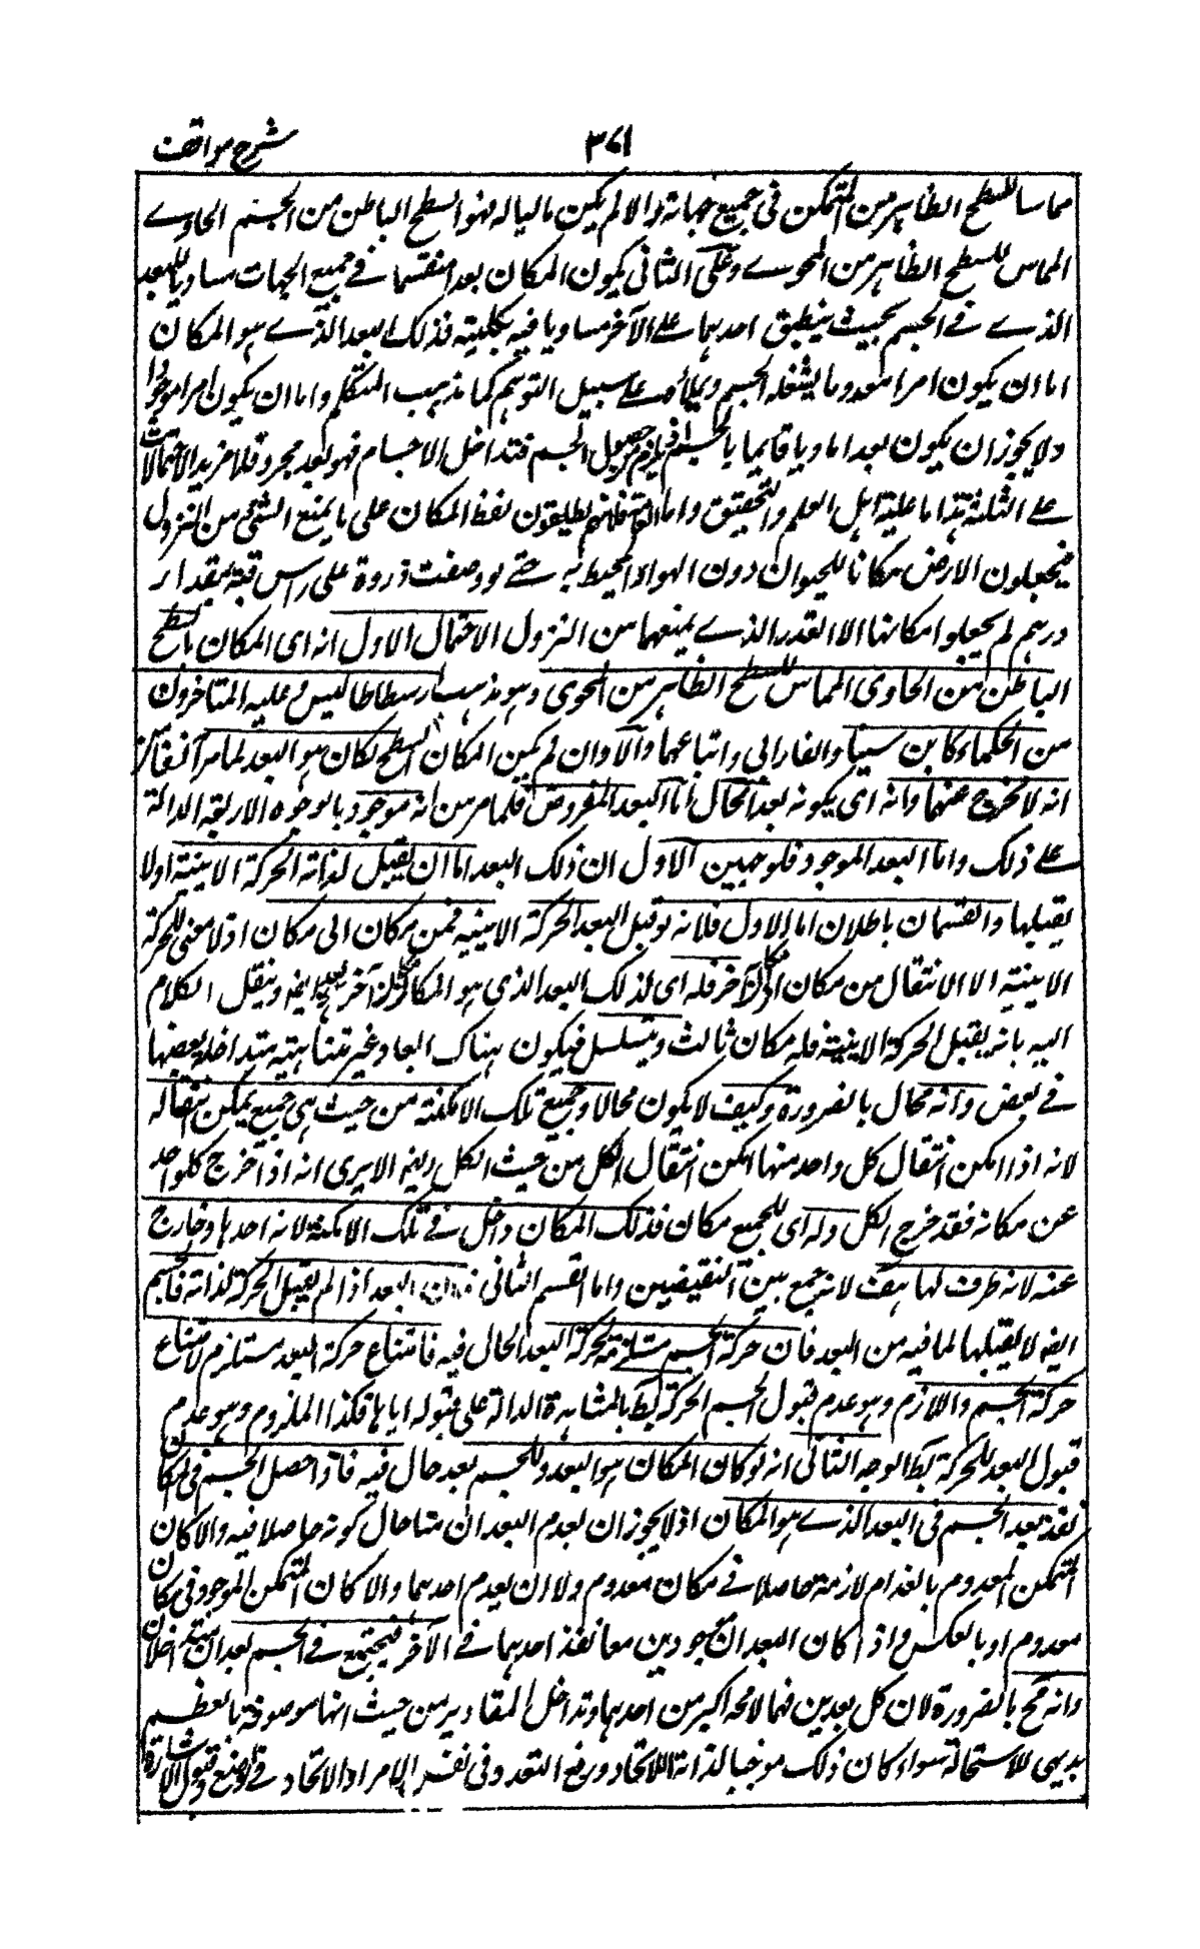 ٣٧١
شرح مواقف
مماسا للسطح الظاهر من المتمكن في جميع جهاته والا لم يكن ماليا له فهو السطح الباطن من الجسم الحاوے
المماس للسطح الظاهر من المحوے وعلى الثاني يكون المكان بعدا منقسما فے جميع الجهات مساويا للبعد
الذے فے الجسم بحيث ينطبق احدهما علے الآخر ساريا فيه بكليته فذلك البعد الذے هو المكان
اما ان يكون امرا معدوما يشغله الجسم ويملأه علے سبيل التوهم كما مذهب المتكلم واما ان يكون امرا موجودا
ولا يجوز ان يكون بعدا ماديا قايما بالجسم اذ يلزم من حصول الجسم فيه تداخل الاجسام فهو بعد مجرد فلا مزيد للاحتمالات
علے الثلثة هذا ما عليه اهل العلم والتحقيق واما العامة فانهم يطلقون لفظ المكان على ما يمنع الشئ من النزول
فيجعلون الارض مكانا للحيوان دون الهواء المحيط به حتے لو وضعت ذروة على راس قبة بمقدار
درهم لم يجعلوا مكانها الا القدر الذے يمنعها من النزول الاحتمال الاول انه اى المكان السطح
الباطن من الحاوى المماس للسطح الظاهر من المحوى وهو مذهب ارسطاطاليس وعليه المتاخرون
من الحكماء كابن سينا والفارابى واتباعهما والا اى وان لم يكن المكان السطح لكان هو البعد لما مر آنفا من
انه لا يخرج عنهما وانه اى كونه بعدا محال اما البعد المفروض فلما مر من انه موجود بالوجوه الاربعة الدالة
علے ذلك واما البعد الموجود فلوجهين الاول ان ذلك البعد اما ان يقبل لذاته الحركة الاينية اولا
يقبلها والقسمان باطلان اما الاول فلانه لو قبل البعد الحركة الاينيه فمن مكان الى مكان اذ لا معنى للحركة
الاينية الا الانتقال من مكان الى مكان آخر فله اى لذلك البعد الذى هو المكان مكان آخر ايضا وينقل الكلام
اليه بانه يقبل الحركة الاينية فله مكان ثالث ويتسلسل فيكون هناك ابعاد غير متناهيه متداخلة بعضها
فے بعض وانه محال بالضرورة وكيف لا يكون محالا وجميع تلك الامكنة من حيث هى جميع يمكن انتقاله
لانه اذا امكن انتقال كل واحد منها امكن انتقال الكل من حيث الكل ايضا الا يرى انه اذا خرج كل واحد
عن مكانه فقد خرج الكل وله اى للجميع مكان فذلك المكان داخل فے تلك الامكنة لانه احدها وخارج
عنه لانه ظرف لها هف لانه جمع بين النقيضين واما القسم الثانى فلان البعد اذا لم يقبل الحركة لذاته فالجسم
ايضا لا يقبلها لما فيه من البعد فان حركة الجسم مستلزمة لحركة البعد الحال فيه فامتناع حركة البعد مستلزم لامتناع
حركة الجسم واللازم وهو عدم قبول الجسم الحركة بط بالمشاهدة الدالة على قبوله اياها فكذا الملزوم وهو عدم
قبول البعد للحركة بط الوجه الثانى انه لو كان المكان هو البعد وللجسم بعد حال فيه فاذا حصل الجسم فى المكان
نفذ بعد الجسم فى البعد الذے هو المكان اذ لا يجوز ان يعدم البعدان معا حال كونه حاصلا فيه والا كان
المتمكن المعدوم بانعدام لازمه حاصلا فے مكان معدوم ولا ان يعدم احدهما والا كان المتمكن الموجود فى مكان
معدوم او بالعكس واذا كان البعدان موجودين معا نفذ احدهما فے الآخر فيجتمع فے الجسم بعدان متداخلان
وانه مح بالضرورة لان كل بعدين فهما لا محه اكبر من احدهما وتداخل المقادير من حيث انها موصوفة بالعظم
بديهى الاستحالة سواء كان ذلك موجبا لذاته للاتحاد ورفع التعدد فى نفس الامر او الاتحاد فے الوضع وقبول الاشارة